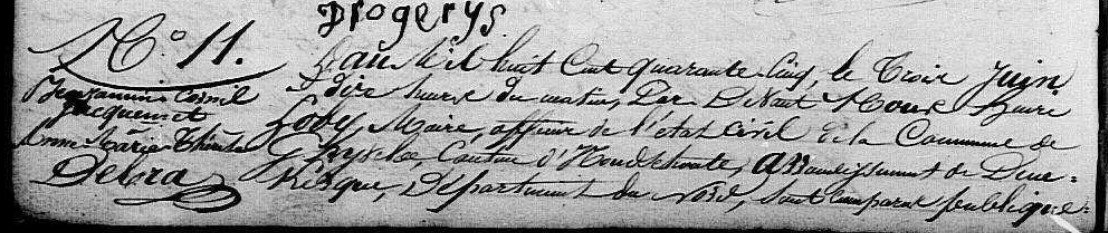 Drogerys
N.° 11.
Benjamin Cornil
Jacquemet
Anne Marie Thérèse
Debra
L'an Mil huit Cent quarante Cinq, le Trois Juin,
dix heures du matin, Par Devant Nous
Maire, officier de l'état Civil de la Commune de
Killem, Canton d'Hondschoote, Arrondissement de Dun=
Kerque, Département du Nord, Sont Comparus publique=